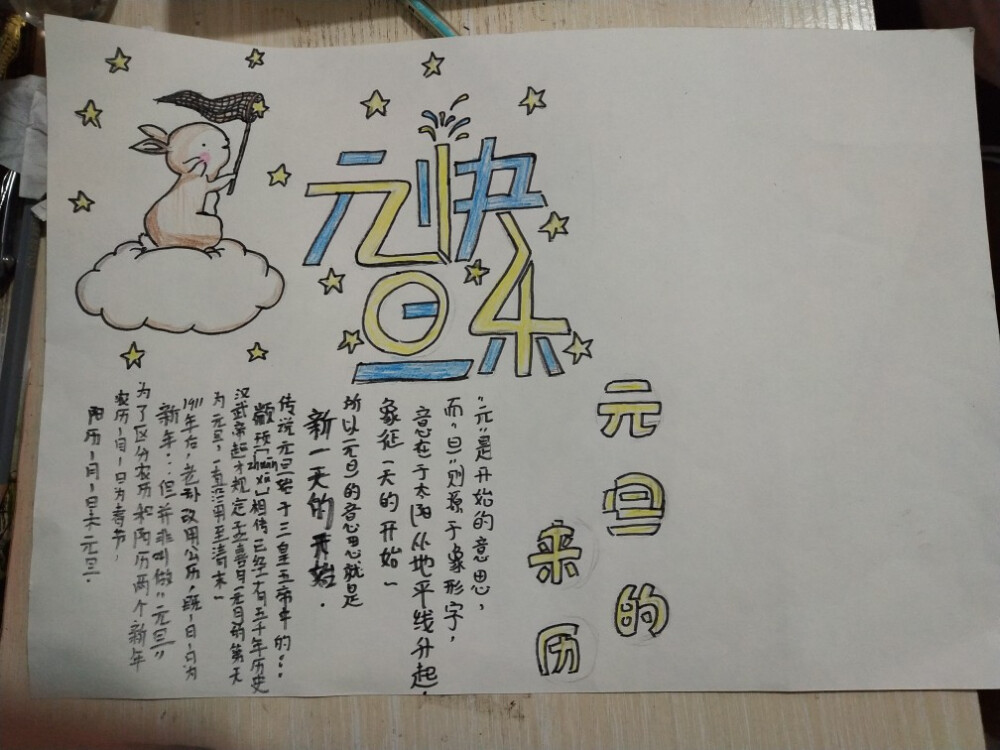 元旦
快乐
元旦的
来历
"元"是开始的意思,
而"旦"则源于象形字,
意在于太阳从地平线升起.
象征一天的开始~
所以元旦的意思就是
新一天的开始.
传说元旦始于三皇五帝中的:..
颛顼[zhuān xū]相传已经有五千年历史
汉武帝起才规定孟喜月元日的第天
为元旦,一直沿用至清末~
1911年后,老孙改用公历,既1日1日为
新年...但并非叫做"元旦"
为了区分农历和阳历两个新年
农历1月1日为春节,
阳历1月1日未元旦.